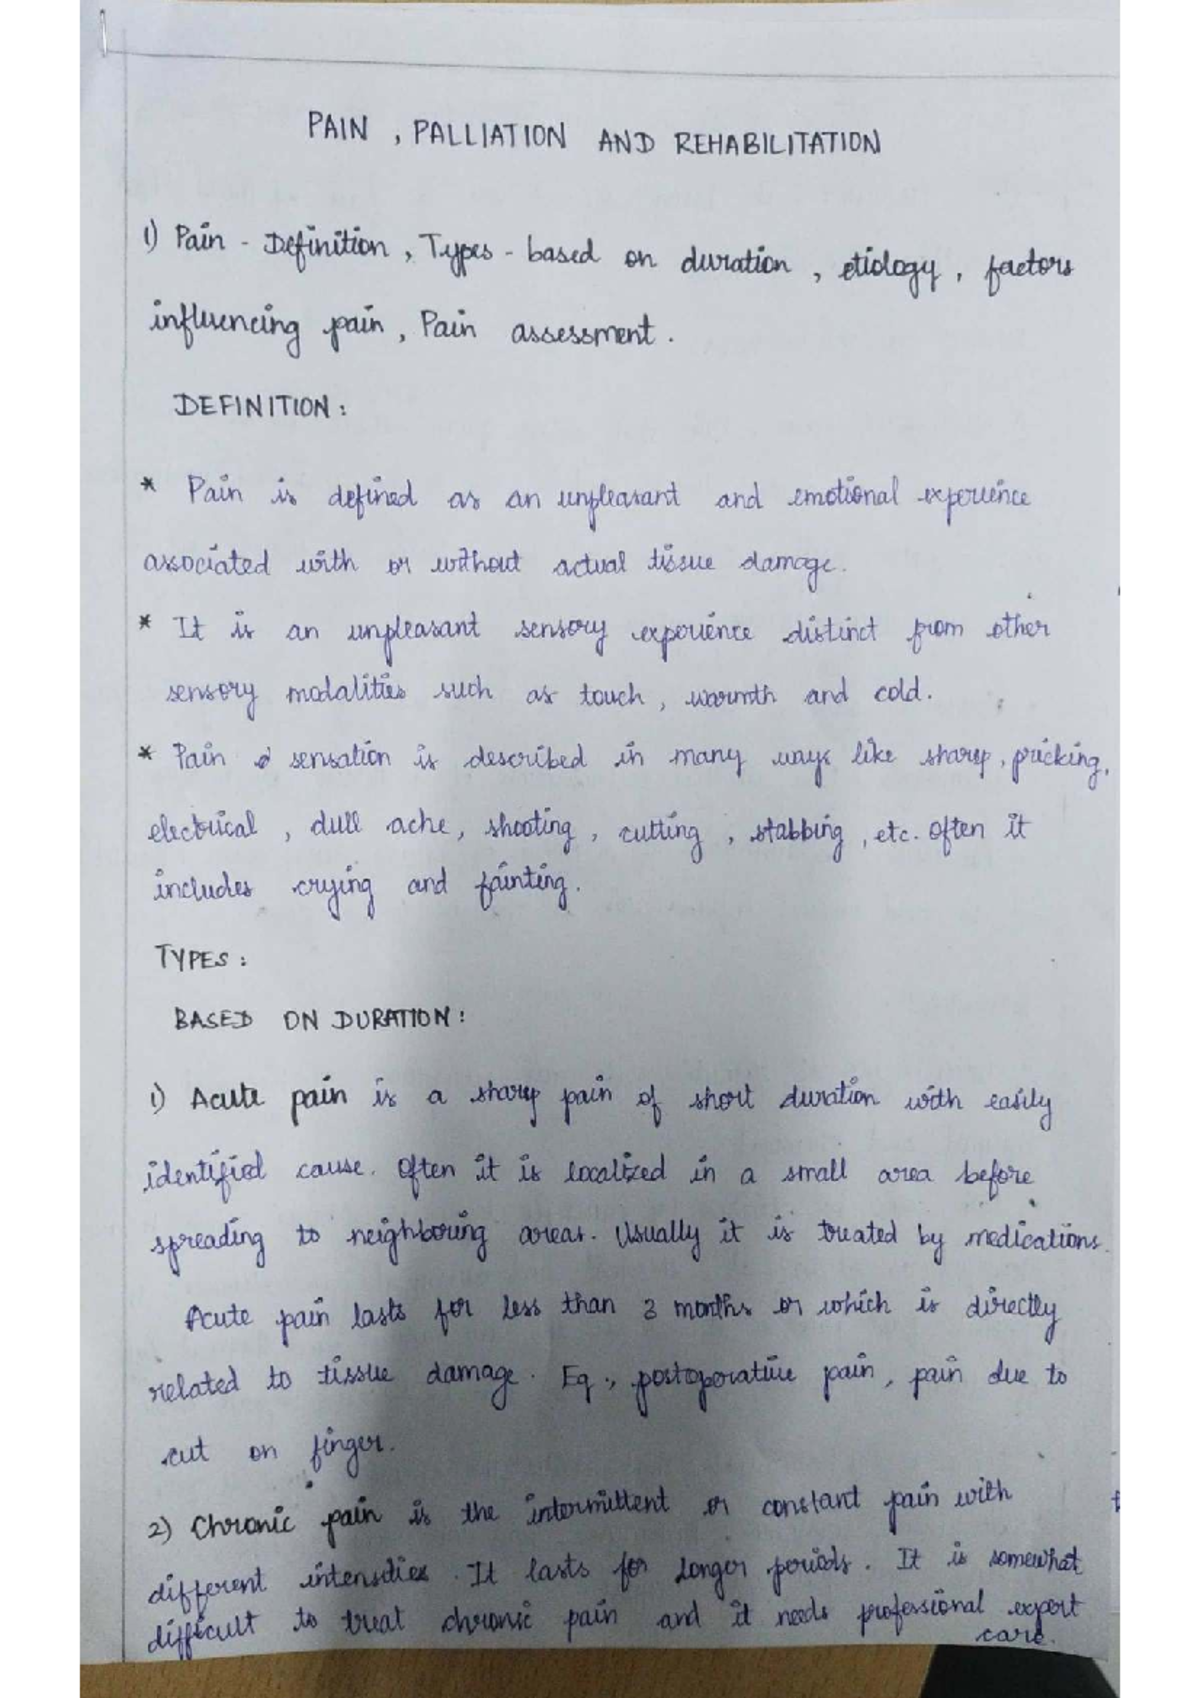 PAIN , PALLIATION AND REHABILITATION
1) Pain - Definition , Types - based on duration , etiology , factors
influencing pain , Pain assessment .
DEFINITION :
* Pain is defined as an unpleasant and emotional experience
associated with or without actual tissue damage.
* It is an unpleasant sensory experience distinct from other
sensory modalities such as touch , warmth and cold .
* Pain sensation is described in many ways like sharp , pricking,
electrical , dull ache , shooting , cutting , stabbing , etc. Often it
includes crying and fainting .
TYPES :
BASED ON DURATION :
1) Acute pain is a sharp pain of short duration with easily
identified cause . Often it is localized in a small area before
spreading to neighboring areas . Usually it is treated by medications .
Acute pain lasts for less than 3 months or which is directly
related to tissue damage . Eg ., postoperative pain , pain due to
cut on finger .
2) Chronic pain is the intermittent or constant pain with
different intensities . It lasts for longer periods . It is somewhat
difficult to treat chronic pain and it needs professional expert
care .